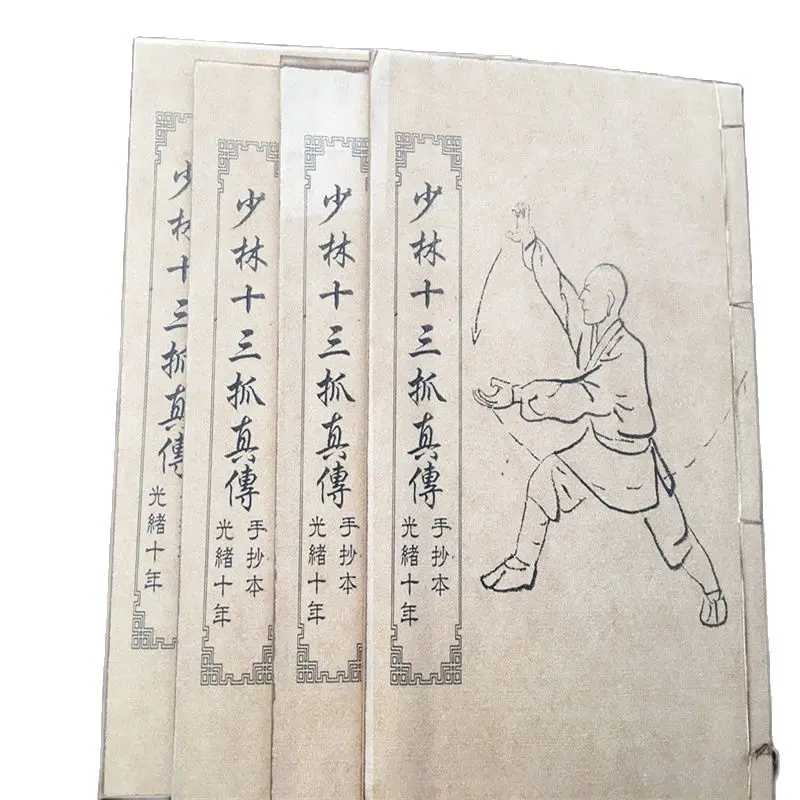 少林十三抓真傳
手抄本
光緒十年
少林十三抓真傳
手抄本
光緒十年
少林十三抓真傳
手抄本
光緒十年
少林十三抓真傳
光緒十年